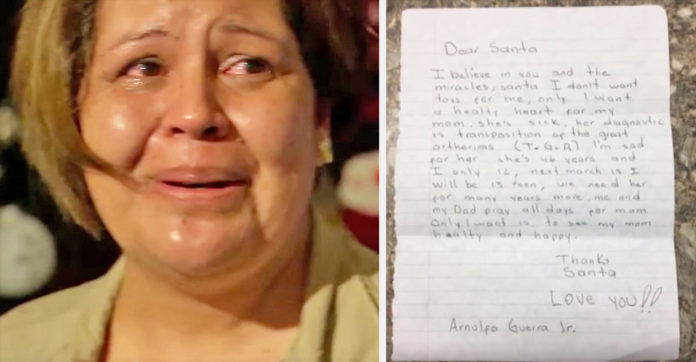 Dear Santa
I believe in you and the
miracles, santa I don't want
toys for me, only I want
a healty heart for my
mom. she's sick, her diagnostic
is transposition of the great
artherias (T.G.A) I'm sad
for her she's 46 years and
I only 12, next march is I
will be 13 teen, we need her
for many years more, me and
my Dad pray all days for mom
Only I want is to see my mom
healty and happy.
Thanks
Santa
Love you!!
Arnulfo Guerra Jr.